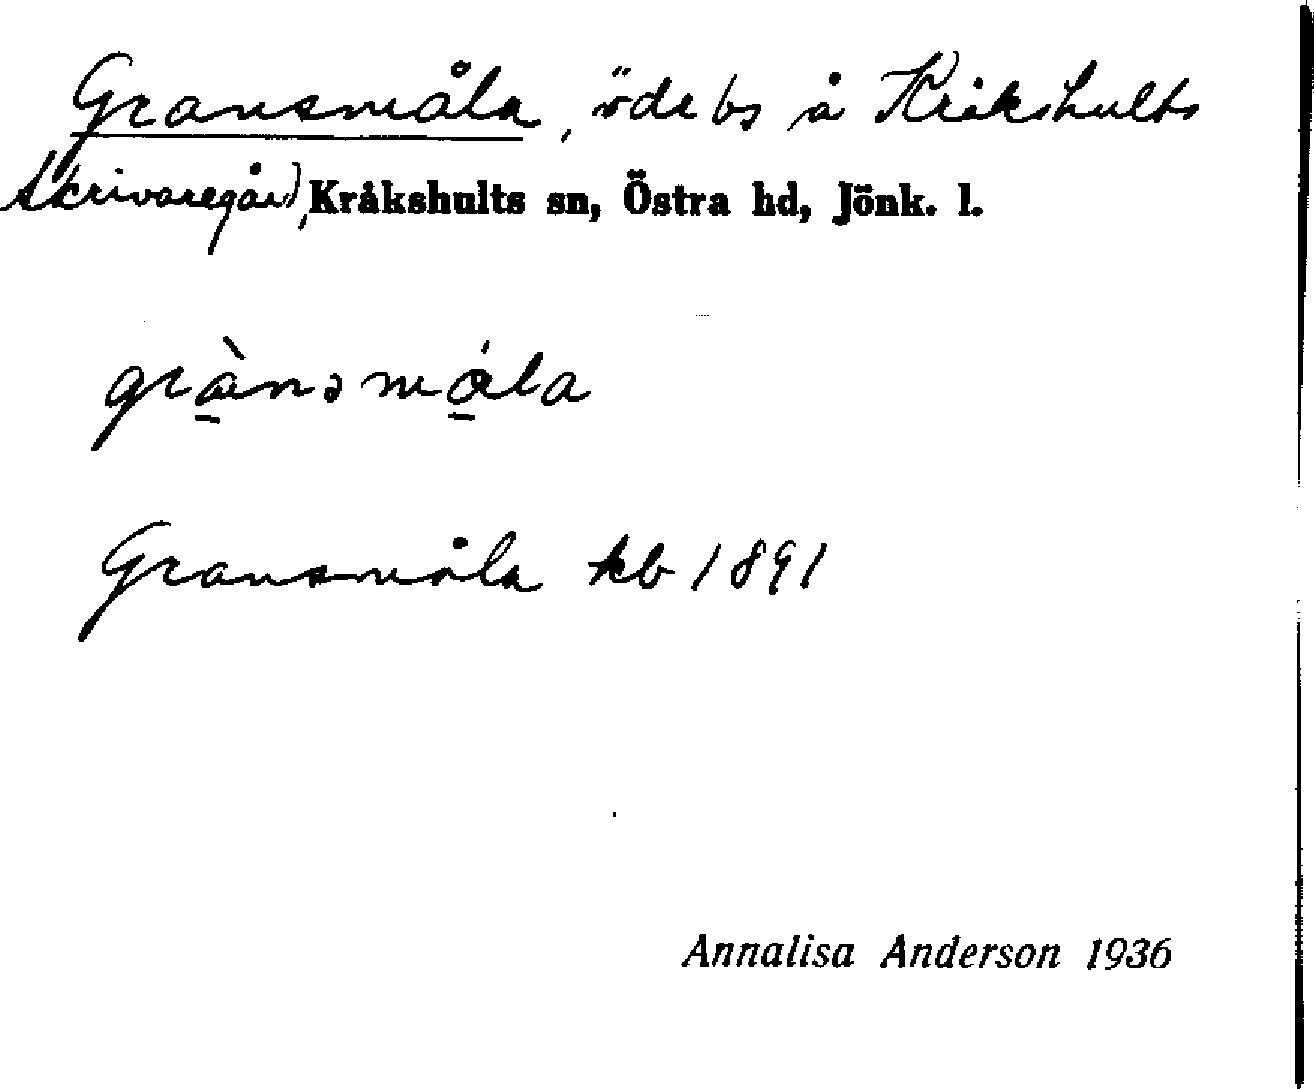 Gransmåla, öde bs å Kråkshults
Skrivaregård, Kråkshults sn, Östra hd, Jönk. l.
grànsmåla
Gransmåla kb 1891
Annalisa Anderson 1936